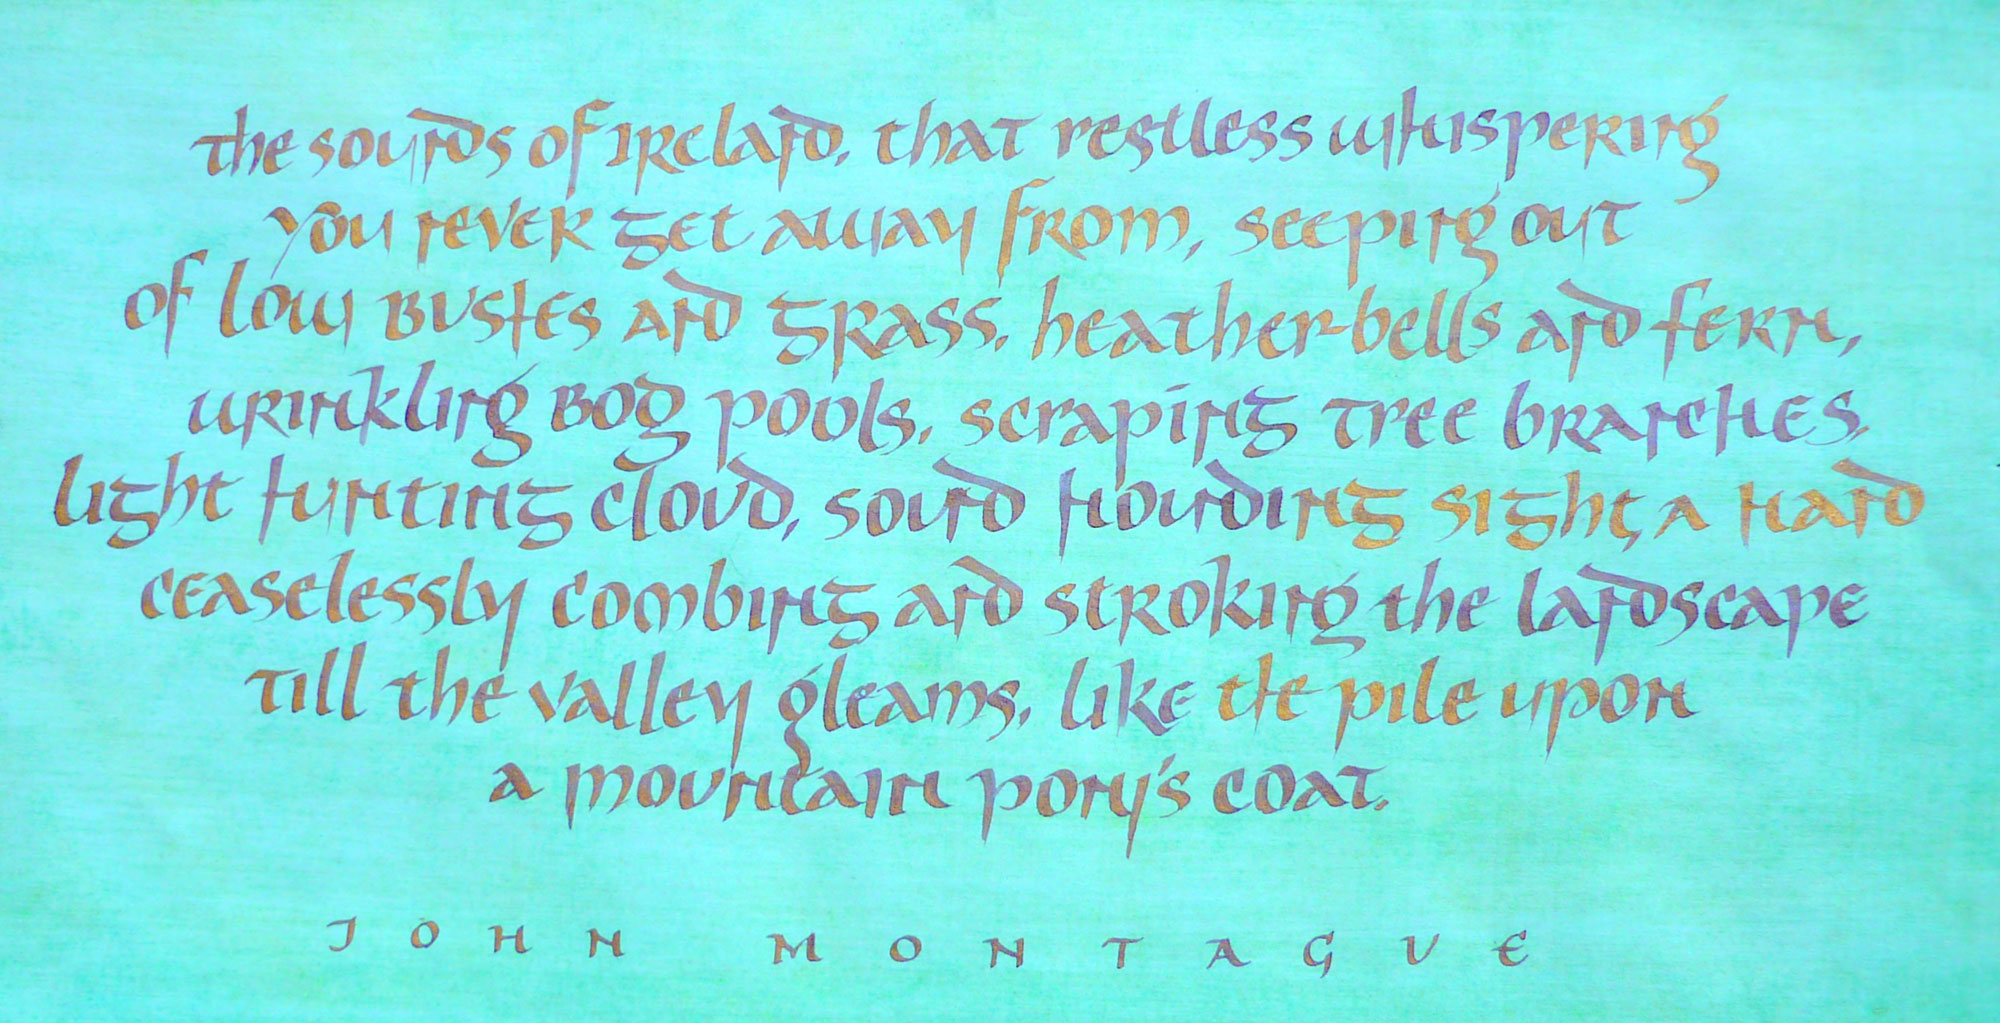 the sounds of Ireland, that restless whispering
you never get away from, seeping out
of low bushes and grass, heather-bells and fern,
wrinkling bog pools, scraping tree branches,
light hunting cloud, sound hounding sight, a hand
ceaselessly combing and stroking the landscape
till the valley gleams, like the pile upon
a mountain pony's coat.
JOHN MONTAGUE